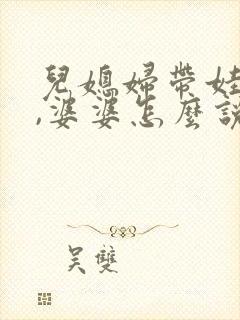 兒媳婦帶娃
,婆婆怎麼說
吳雙